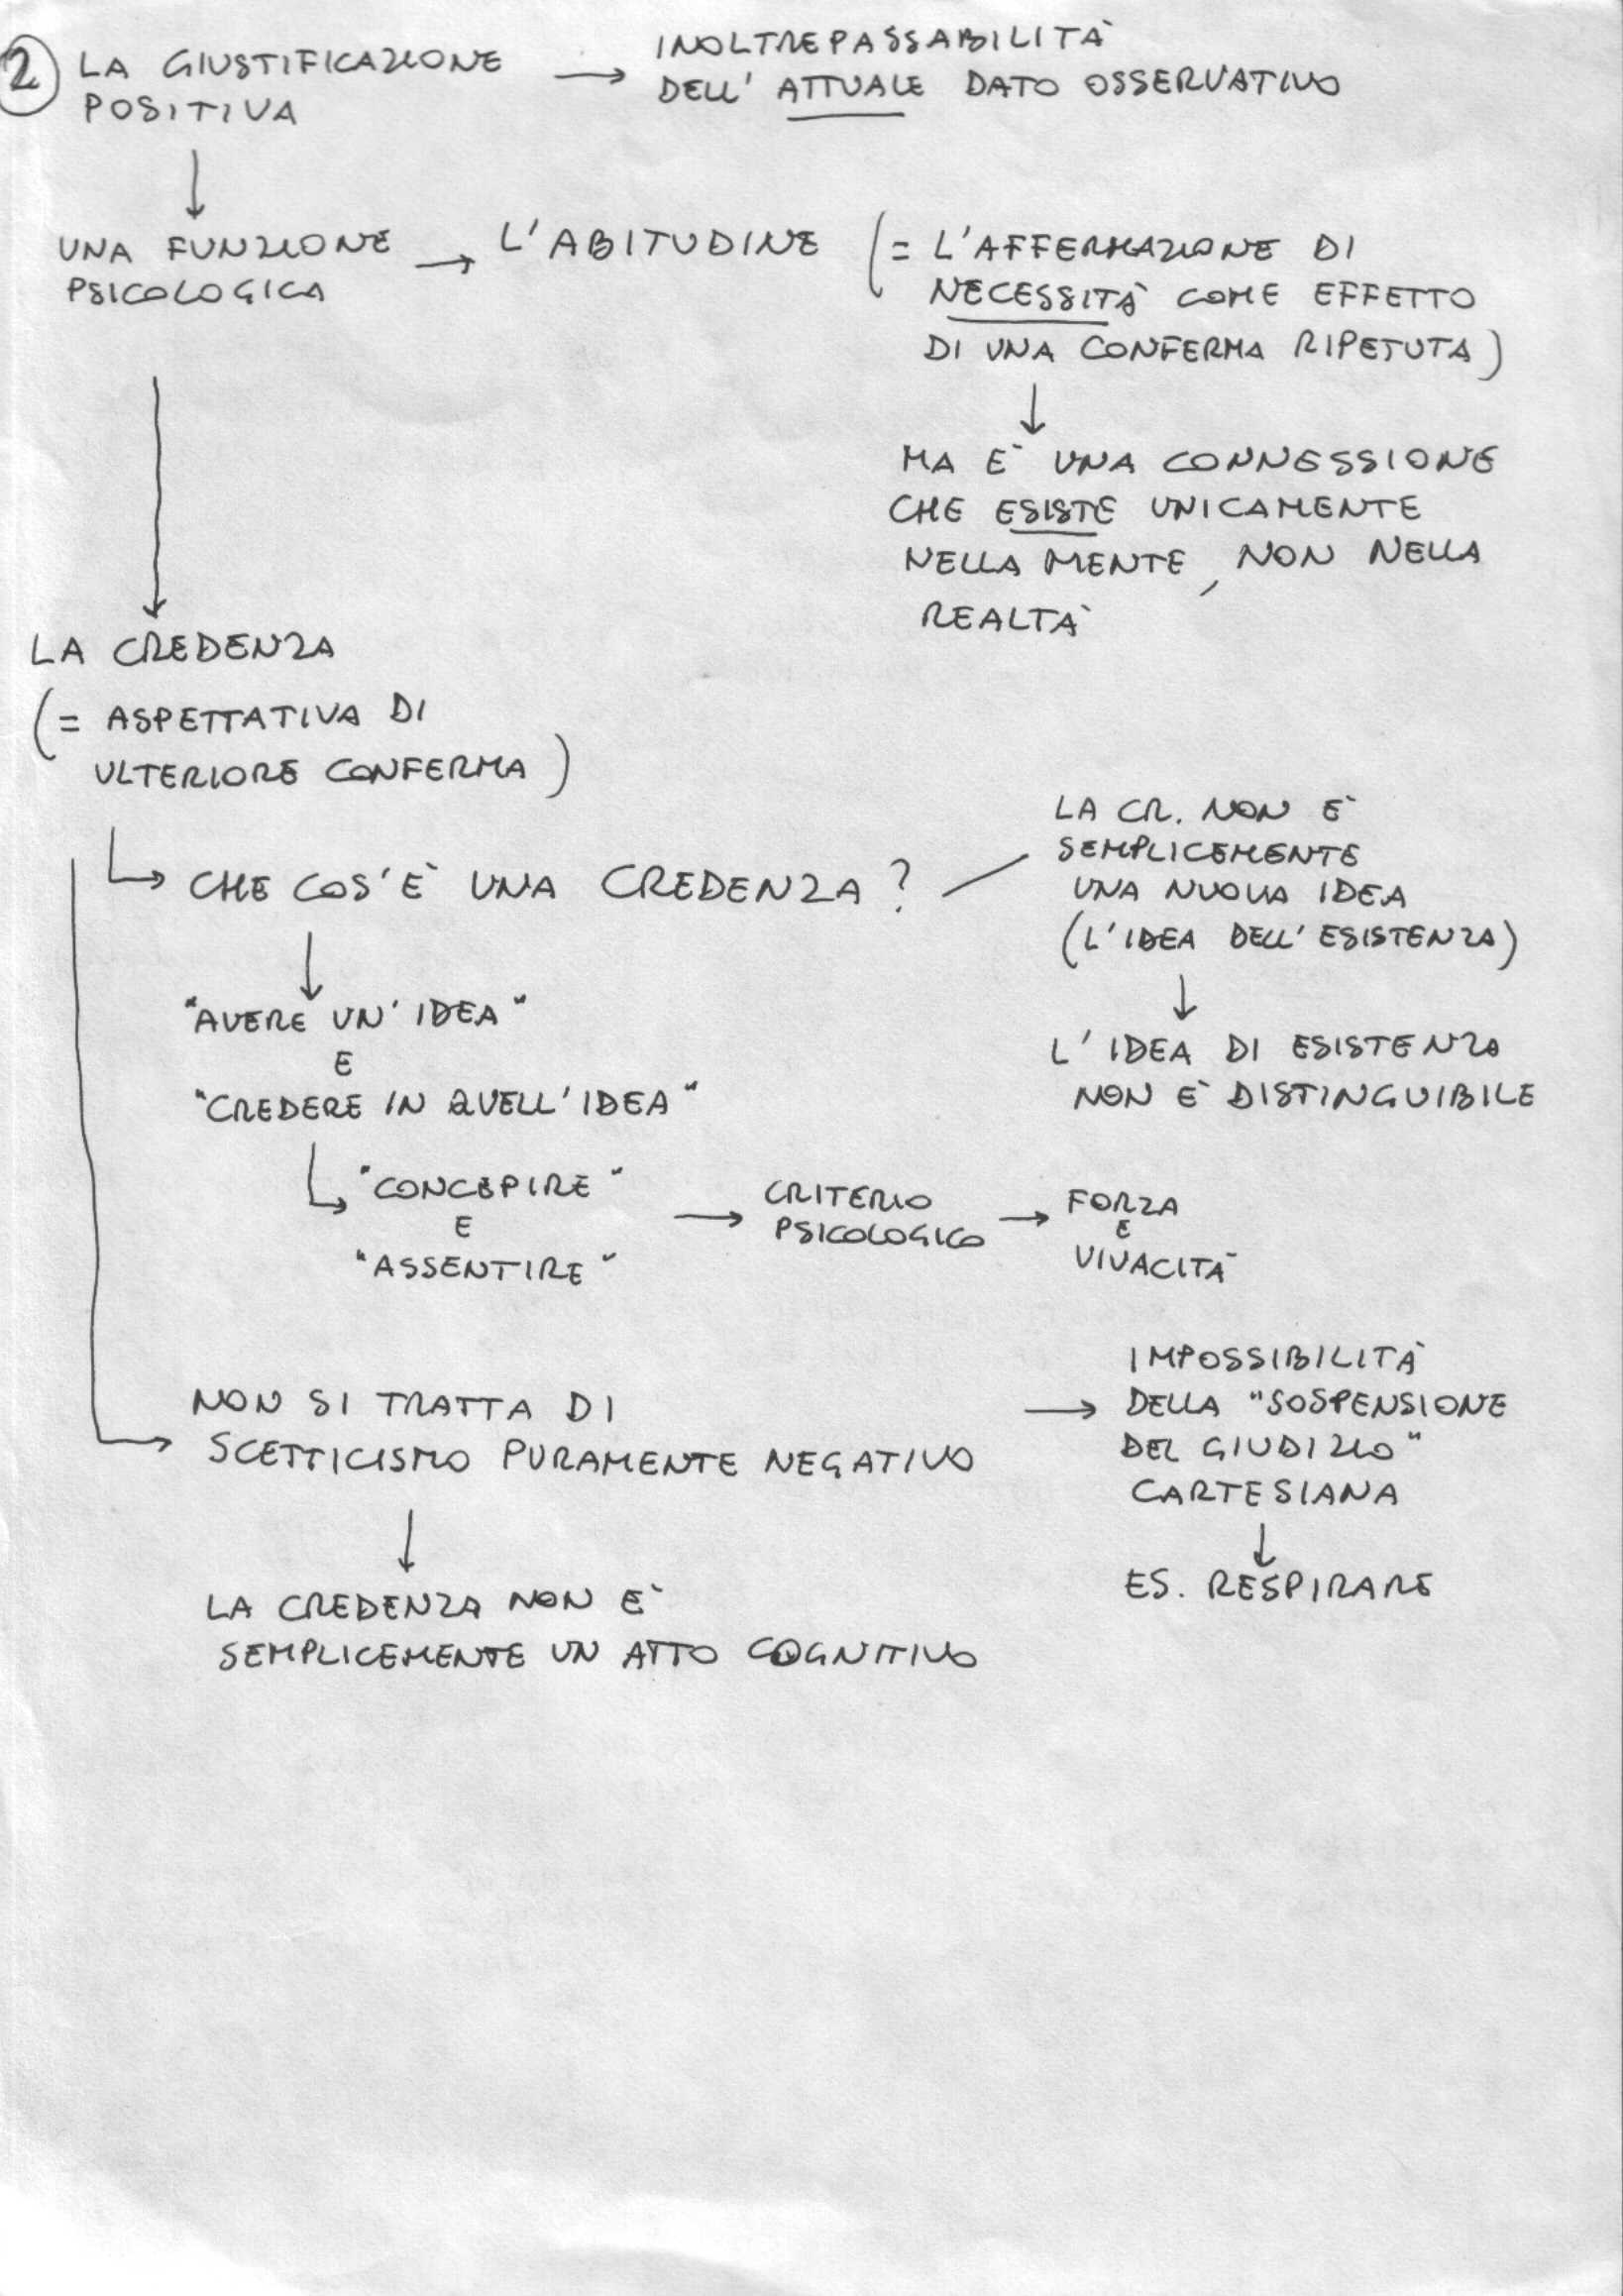 2
LA GIUSTIFICAZIONE
POSITIVA
→ INOLTREPASSABILITÀ
DELL' ATTUALE DATO OSSERVATIVO
↓
UNA FUNZIONE
PSICOLOGICA
→ L'ABITUDINE
(= L'AFFERMAZIONE DI
NECESSITÀ COME EFFETTO
DI UNA CONFERMA RIPETUTA)
↓
MA È UNA CONNESSIONE
CHE ESISTE UNICAMENTE
NELLA MENTE, NON NELLA
REALTÀ
↓
LA CREDENZA
(= ASPETTATIVA DI
ULTERIORE CONFERMA)
↳ CHE COS'È UNA CREDENZA?
LA CR. NON È
SEMPLICEMENTE
UNA NUOVA IDEA
(L'IDEA DELL'ESISTENZA)
↓
L'IDEA DI ESISTENZA
NON È DISTINGUIBILE
↓
"AVERE UN'IDEA"
E
"CREDERE IN QUELL'IDEA"
↳ "CONCEPIRE"
E
"ASSENTIRE"
→ CRITERIO
PSICOLOGICO
→ FORZA
E
VIVACITÀ
→ NON SI TRATTA DI
SCETTICISMO PURAMENTE NEGATIVO
→ IMPOSSIBILITÀ
DELLA "SOSPENSIONE
DEL GIUDIZIO"
CARTESIANA
↓
ES. RESPIRARE
↓
LA CREDENZA NON È
SEMPLICEMENTE UN ATTO COGNITIVO